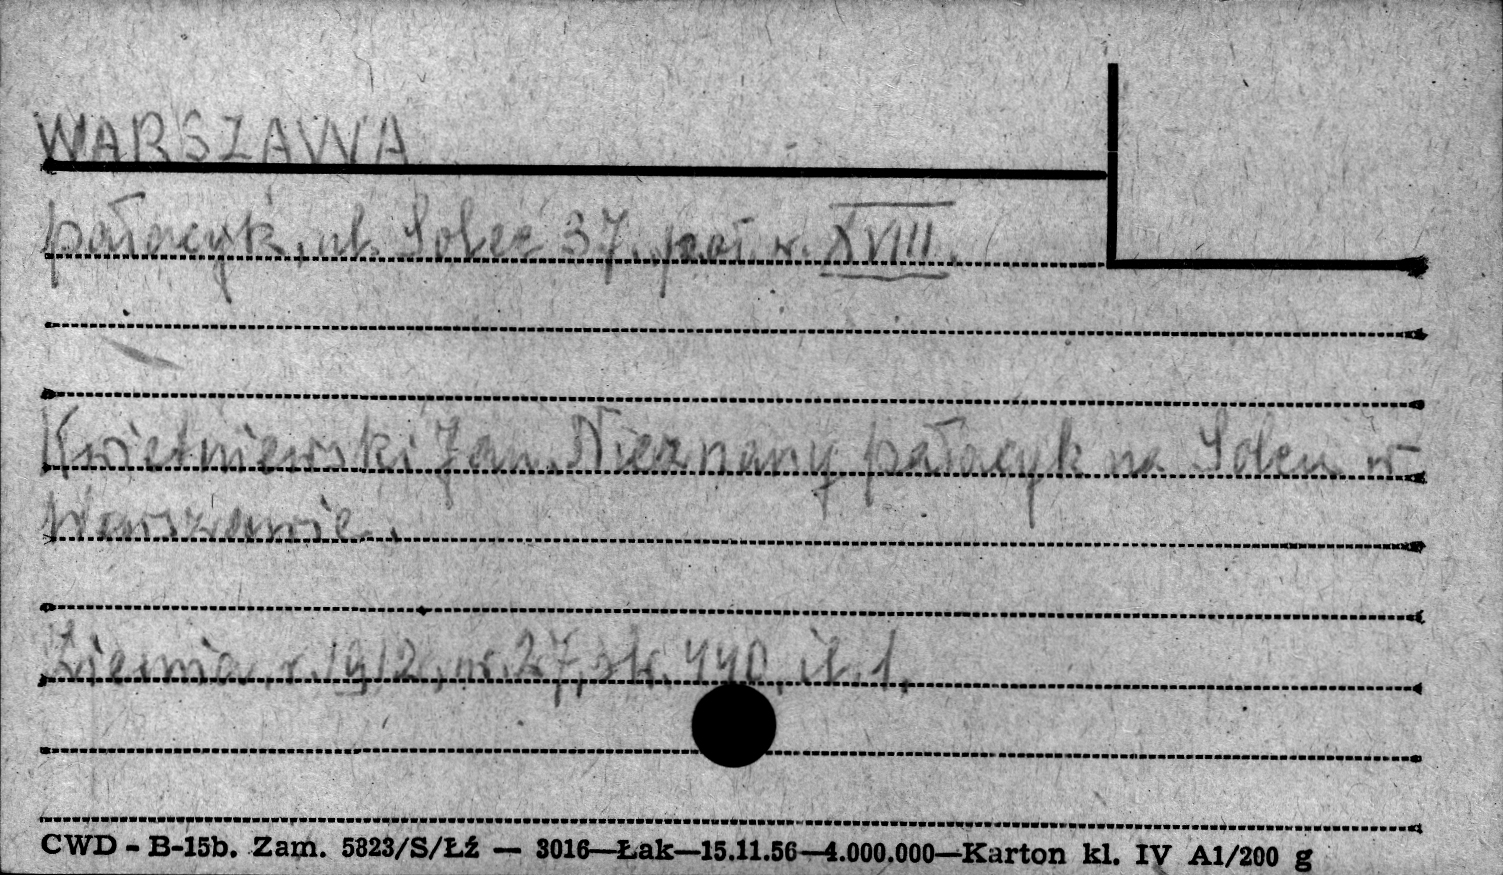 WARSZAWA
pałacyk, ul. Solec 37. poł. w. XVIII.
Kwietniewski Jan. Nieznany pałacyk na Solcu w
Warszawie.
Ziemia, r. 1912, nr. 27, str. 440, il. 1.
CWD - B-15b. Zam. 5823/S/Łź — 3016—Łak—15.11.56—4.000.000—Karton kl. IV A1/200 g